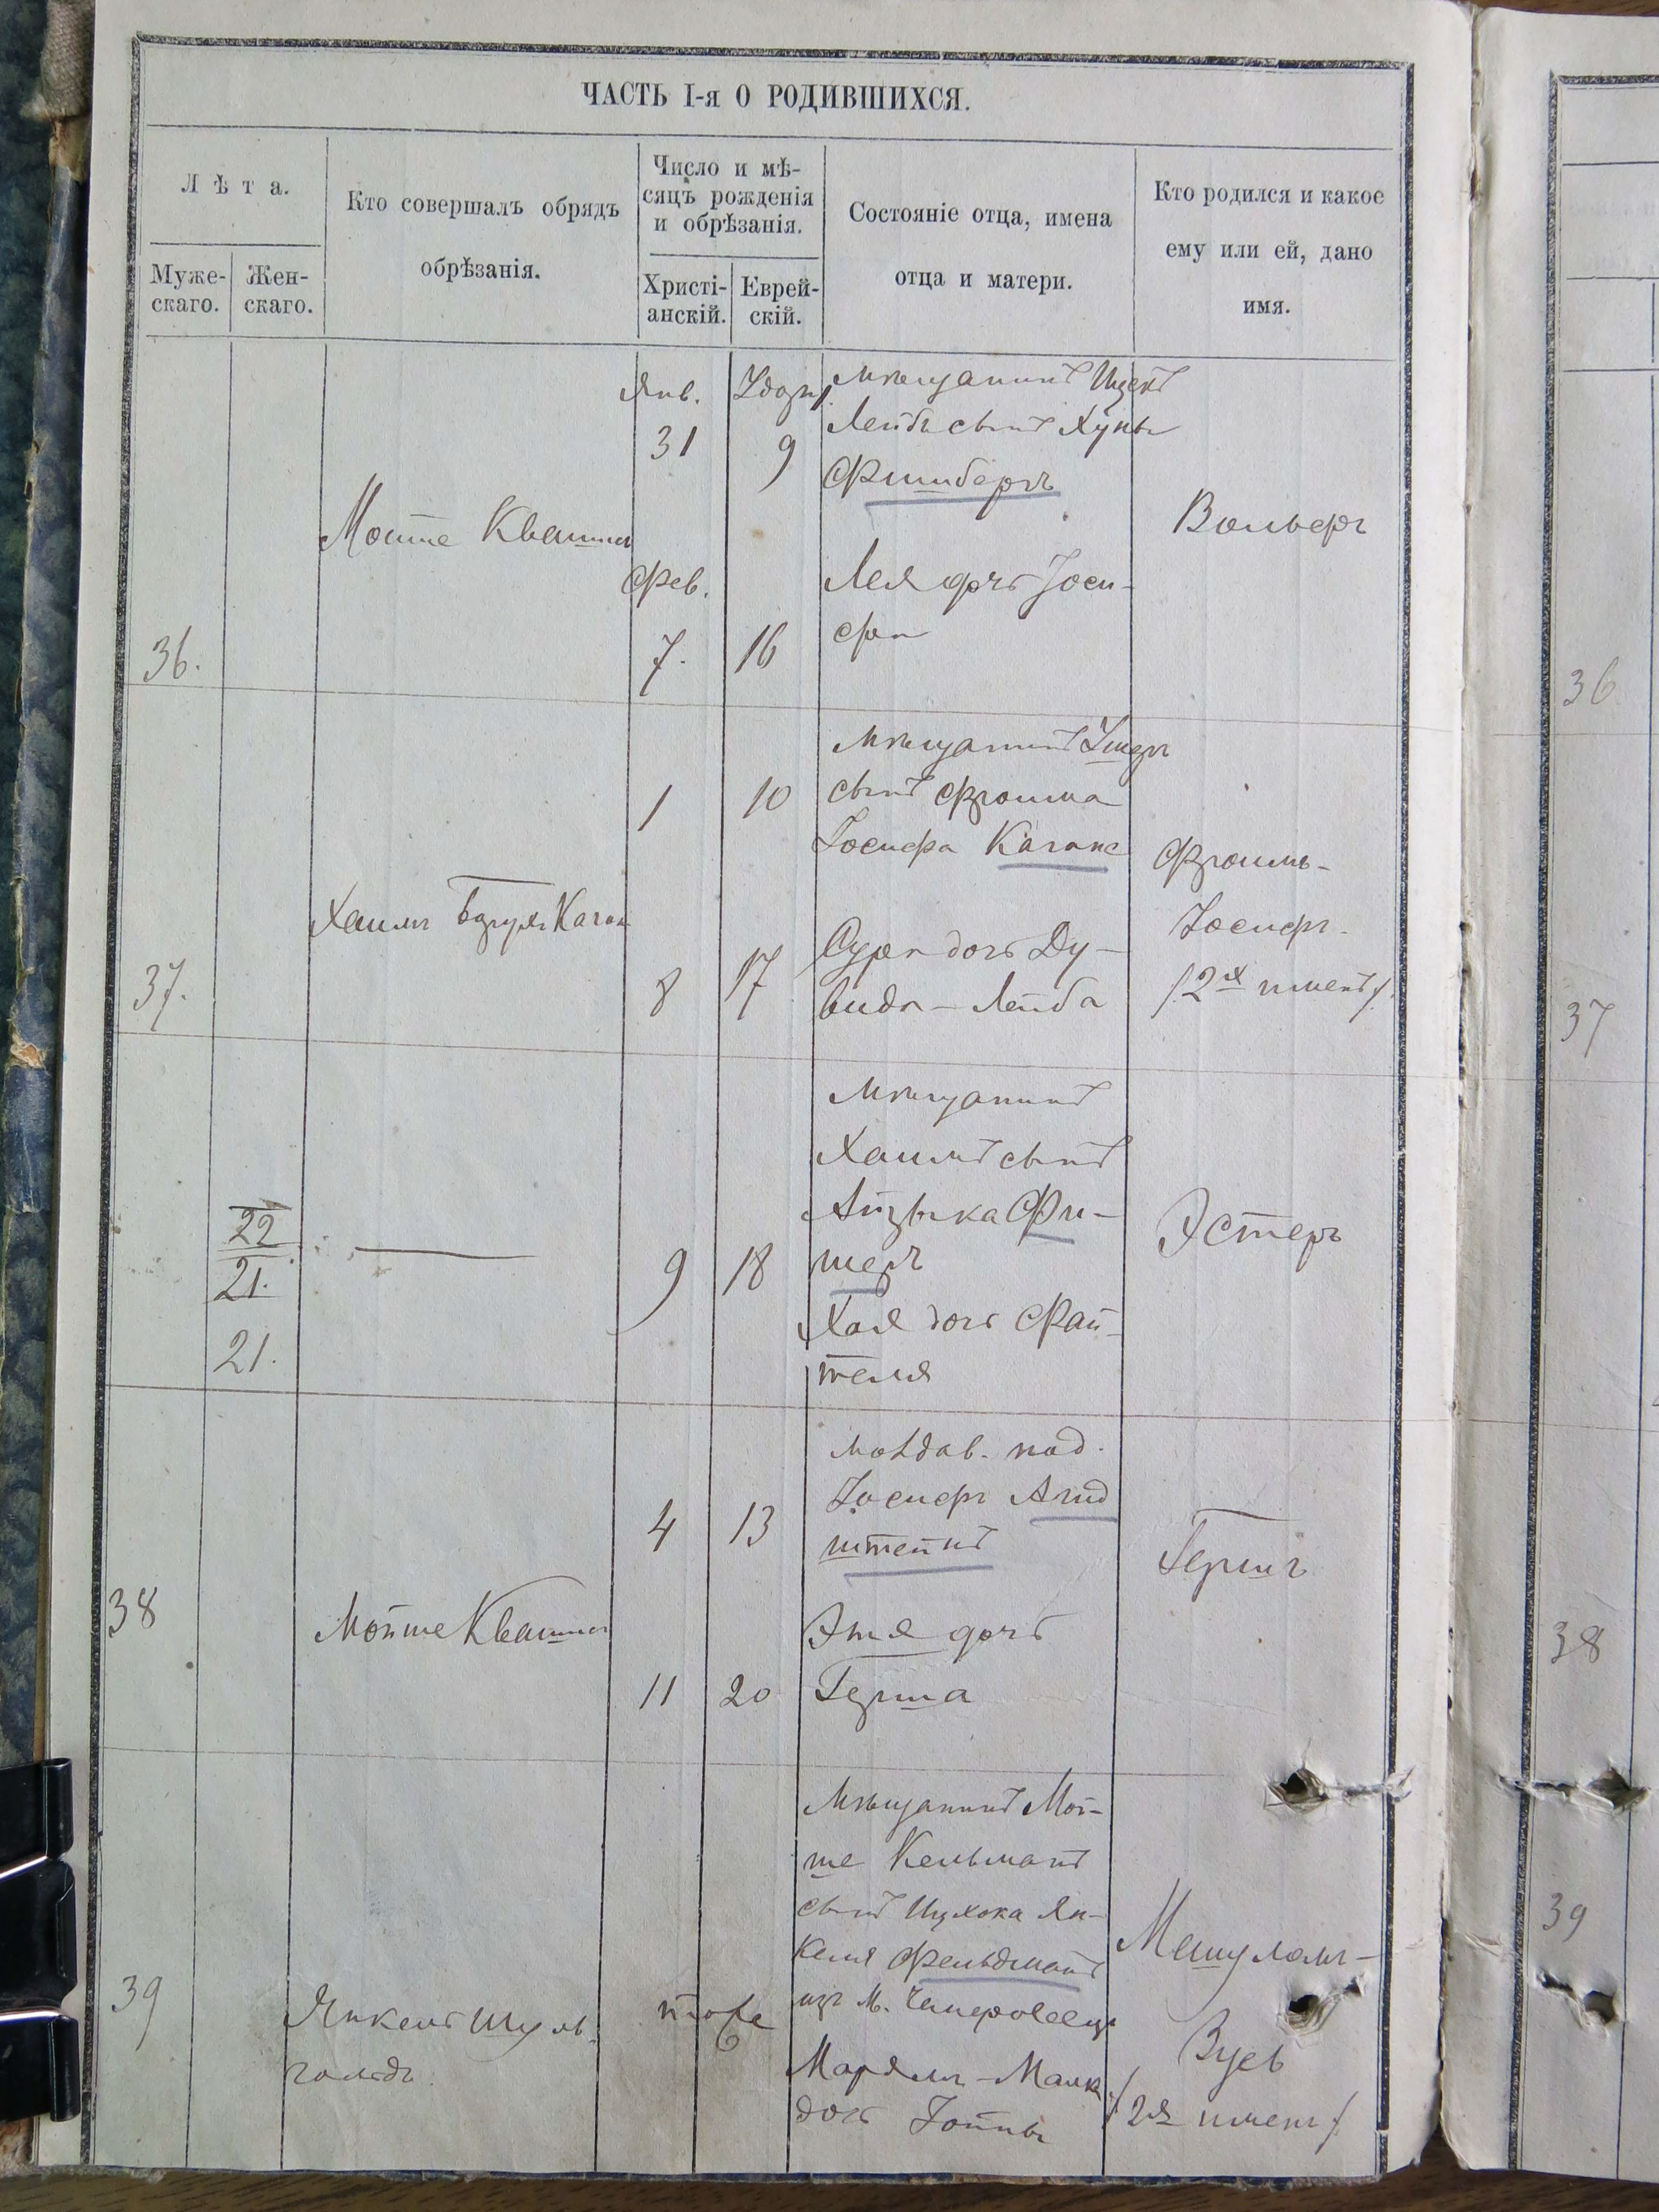 ЧАСТЬ I-я О РОДИВШИХСЯ.
Лѣта.
Муже-
скаго.
Жен-
скаго.
Кто совершалъ обрядъ
обрѣзанія.
Число и мѣ-
сяцъ рожденія
и обрѣзанія.
Христі-
анскій.
Еврей-
скій.
Состояніе отца, имена
отца и матери.
Кто родился и какое
ему или ей, дано
имя.
36.
Мойше Кваша
Янв.
31
Фев.
7.
9
16
мѣщанинъ Ицекъ
Лейбъ сынъ Хуны
Фишберъ
Лея дочь Іоси-
фа
Вольфъ
37.
Хаимъ Каган
1
8
10
17
мѣщанинъ Ушеръ
сынъ Фроима
Іосифа Кагане
Сура дочь Ду-
вида-Лейба
Фроимъ-
Іосифъ.
/2х именъ/.
22
21.
21.
9
18
мѣщанинъ
Хаимъ сынъ
Айзыка Фи-
шеръ
Хая дочь Фай-
теля
Эстеръ
38
Мойше Кваша
4
11
13
20
молдав. под.
Іосифъ
штейнъ
Этя дочь
Герша
Гершъ
39
Янкель Шуль-
гольдъ
тоже
Мѣщанинъ Мой-
ше Кельманъ
сынъ Ицхока Ян-
келя Фельдманъ
изъ м.
Маріямъ-Малка
дочь Іойны
Мешуламъ-
Зусь
/2я имени/
36
37
38
39